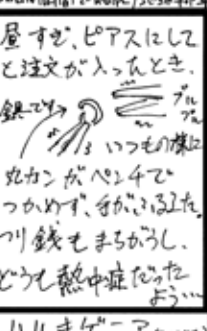 昼すぎ、ピアスにして
と注文が入ったとき、
銀です→
プル
プル
いつもの様に
丸カンがペンチで
つかめず、手がふるえた。
つり銭もまちがうし、
どうも熱中症だった
よう…